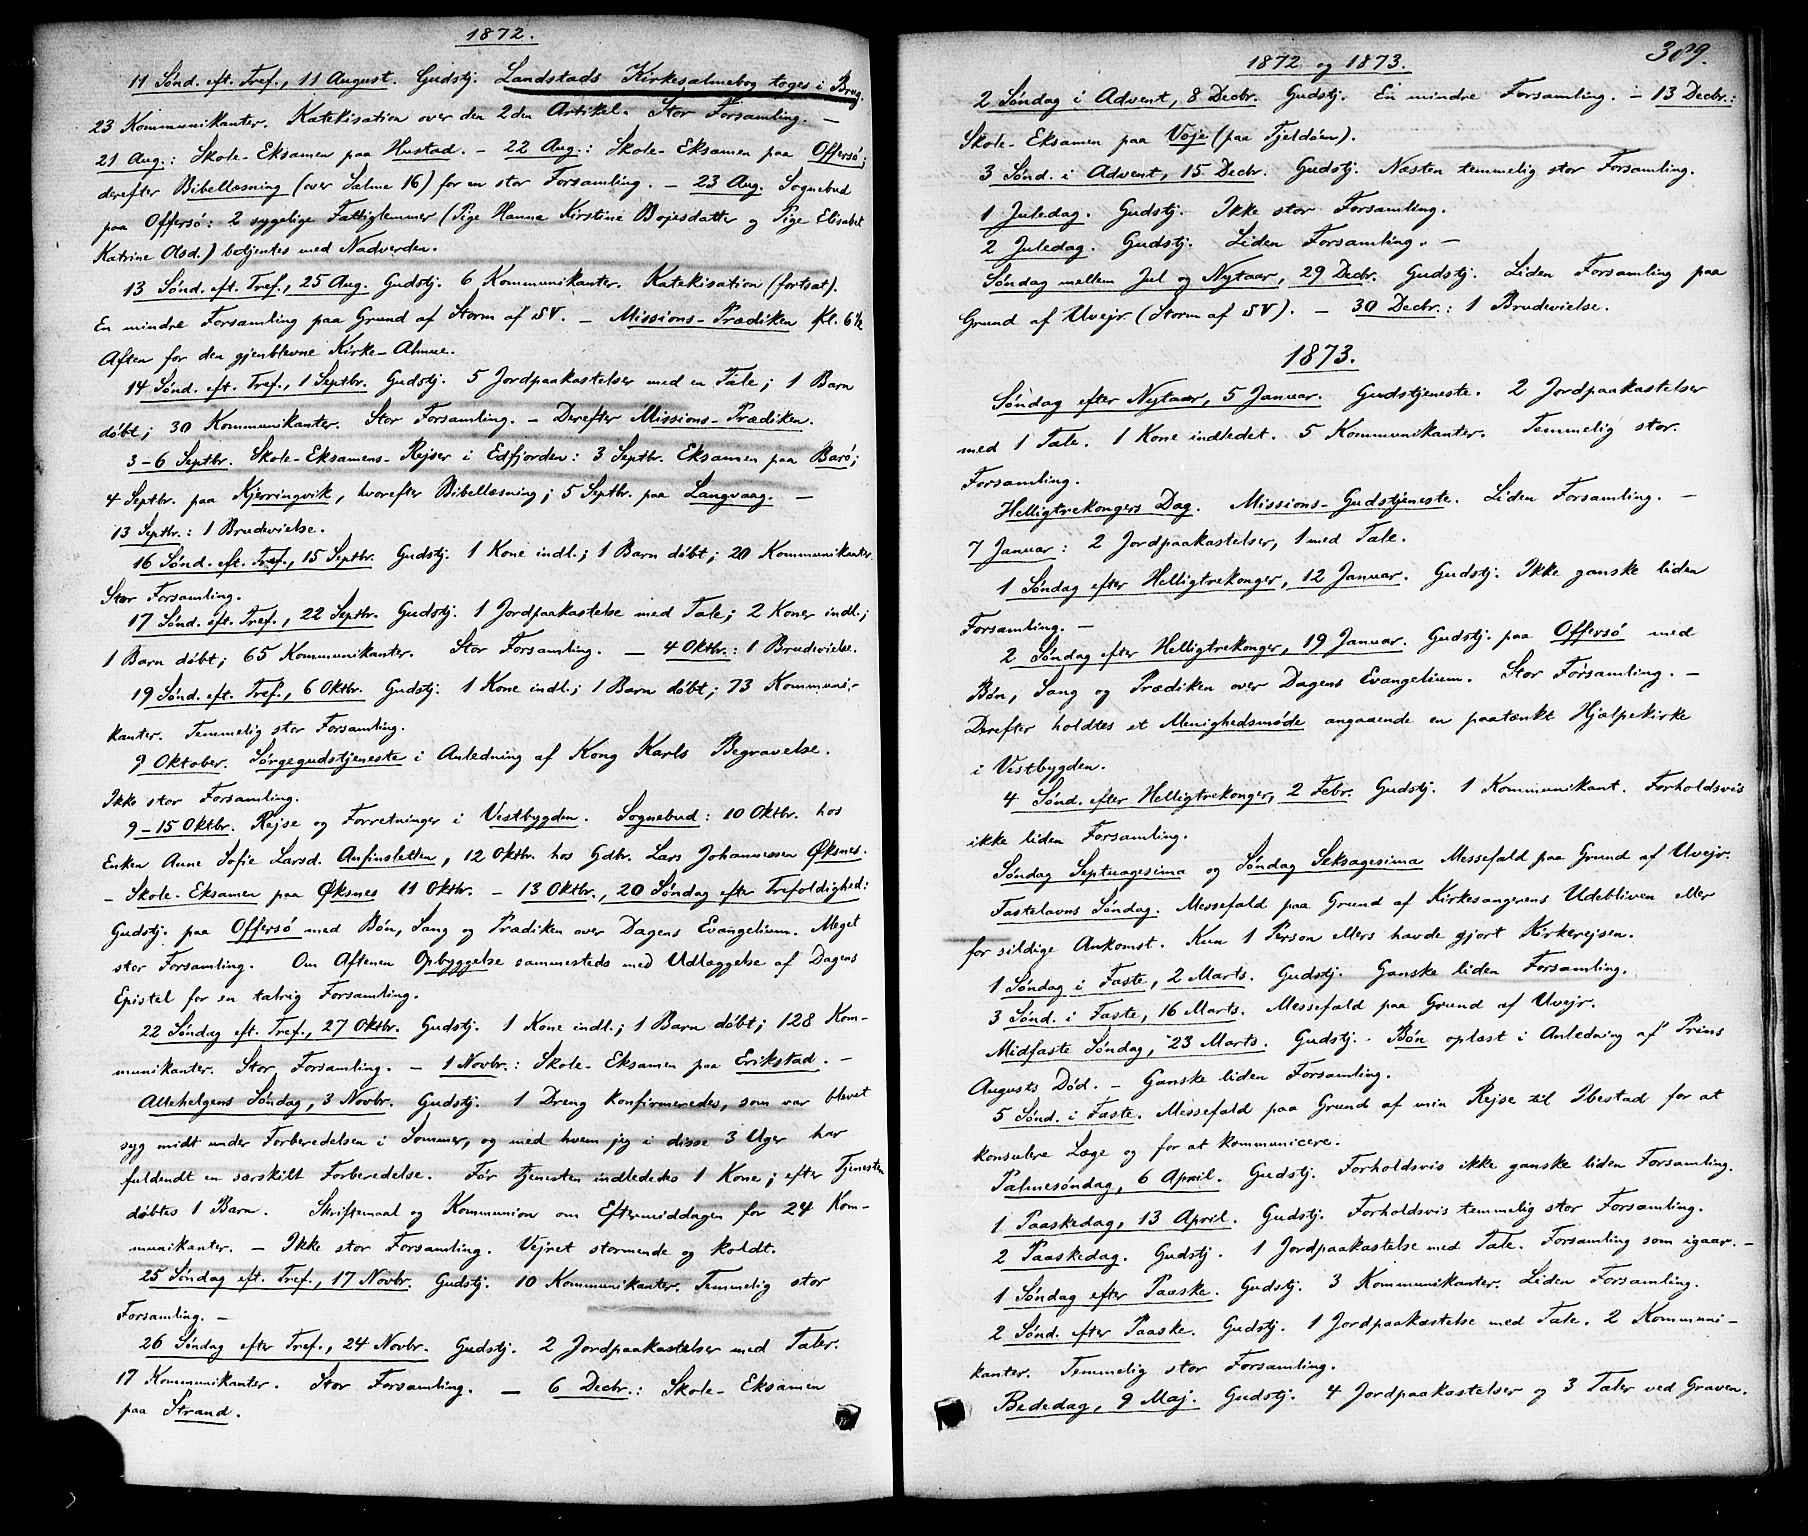 1872.
11 Sønd. eft. Tref., 11 August. Gudstj. Landstads Kirkesalmebog toges i Brug.
23 Kommunikanter. Katekisation over den 2den Artikel. Stor Forsamling. –
21 Aug.: Skole-Eksamen paa Hustad. – 22 Aug.: Skole-Eksamen paa Offersø;
derefter Bibellæsning (over Salme 16) for en stor Forsamling. – 23 Aug. Sognebud
paa Offersø: 2 sygelige Fattiglemmer (Pige Hanna Kirstine Bojesdatter og Pige Elisabet
Katrine Olsd.) betjentes med Nadverden.
13 Sønd. eft. Tref., 25 Aug. Gudstj. 6 Kommunikanter. Katekisation (fortsat).
En mindre Forsamling paa Grund af Storm af SV. – Missions-Prædiken Kl. 6½
Aften for den gjenblevne Kirke-Almue.
14 Sønd. eft. Tref., 1 Septbr. Gudstj. 5 Jordpaakastelser med en Tale; 1 Barn
døbt; 30 Kommunikanter. Stor Forsamling. – Derefter Missions-Prædiken.
3–6 Septbr. Skole-Eksamens-Rejser i Edfjorden: 3 Septbr. Eksamen paa Barø;
4 Septbr. paa Kjerringvik, hvorefter Bibellæsning; 5 Septbr. paa Langvaag. –
13 Septbr.: 1 Brudevielse.
16 Sønd. eft. Tref., 15 Septbr. Gudstj. 1 Kone indl.; 1 Barn døbt; 20 Kommunikanter.
Stor Forsamling.
17 Sønd. eft. Tref., 22 Septbr. Gudstj. 1 Jordpaakastelse med Tale; 2 Koner indl.;
1 Barn døbt; 65 Kommunikanter. Stor Forsamling. – 4 Oktbr.: 1 Brudevielse.
19 Sønd. eft. Tref., 6 Oktbr. Gudstj. 1 Kone indl.; 1 Barn døbt; 73 Kommuni-
kanter. Temmelig stor Forsamling.
9 Oktober. Sørgegudstjeneste i Anledning af Kong Karls Begravelse.
Ikke stor Forsamling.
9–15 Oktbr. Rejse og Forretninger i Vestbygden. Sognebud: 10 Oktbr. hos
Enken Anne Sofie Larsd. Anfinsletten, 12 Oktbr. hos Gdbr. Lars Johannessen Øksnes.
– Skole-Eksamen paa Øksnes 11 Oktbr. – 13 Oktbr., 20 Søndag efter Trefoldighed:
Gudstj. paa Offersø med Bøn, Sang og Prædiken over Dagens Evangelium. Meget
stor Forsamling. Om Aftenen Opbyggelse sammesteds med Udlæggelse af Dagens
Epistel for en talrig Forsamling.
22 Søndag eft. Tref., 27 Oktbr. Gudstj. 1 Kone indl.; 1 Barn døbt; 128 Kom-
munikanter. Stor Forsamling. – 1 Novbr.: Skole-Eksamen paa Erikstad. –
Allehelgens Søndag, 3 Novbr. Gudstj. 1 Dreng konfirmeredes, som var blevet
syg midt under Forberedelsen i Sommer, og med hvem jeg i disse 3 Uger har
fuldendt en særskilt Forberedelse. Før Tjenesten indledes 1 Kone; efter Tjenesten
døbtes 1 Barn. Skriftemaal og Kommunion om Eftermiddagen for 24 Kom-
munikanter. – Ikke stor Forsamling. Vejret stormende og koldt.
25 Søndag eft. Tref., 17 Novbr. Gudstj. 10 Kommunikanter. Temmelig stor
Forsamling. –
26 Søndag efter Tref., 24 Novbr. Gudstj. 2 Jordpaakastelser med Taler.
17 Kommunikanter. Stor Forsamling. – 6 Decbr.: Skole-Eksamen
paa Strand.
309.
1872 og 1873.
2 Søndag i Advent, 8 Decbr. Gudstj. En mindre Forsamling. – 13 Decbr.:
Skole-Eksamen paa Voje (paa Tjeldøen).
3 Sønd. i Advent, 15 Decbr. Gudstj. Næsten temmelig stor Forsamling.
1 Juledag. Gudstj. Ikke stor Forsamling.
2 Juledag. Gudstj. Liden Forsamling. –
Søndag mellem Jul og Nytaar, 29 Decbr. Gudstj. Liden Forsamling paa
Grund af Uvejr (Storm af SV). – 30 Decbr.: 1 Brudevielse.
1873.
Søndag efter Nytaar, 5 Januar. Gudstjeneste. 2 Jordpaakastelser
med 1 Tale. 1 Kone indledet. 5 Kommunikanter. Temmelig stor
Forsamling.
Helligtrekongers Dag. Missions-Gudstjeneste. Liden Forsamling. –
7 Januar: 2 Jordpaakastelser, 1 med Tale.
1 Søndag efter Helligtrekonger, 12 Januar. Gudstj. Ikke ganske liden
Forsamling. –
2 Søndag efter Helligtrekonger, 19 Januar. Gudstj. paa Offersø med
Bøn, Sang og Prædiken over Dagens Evangelium. Stor Forsamling. –
Derefter holdtes et Menighedsmøde angaaende en paatænkt Hjælpekirke
i Vestbygden.
4 Sønd. efter Helligtrekonger, 2 Febr. Gudstj. 1 Kommunikant. Forholdsvis
ikke liden Forsamling.
Søndag Septuagesima og Søndag Seksagesima Messefald paa Grund af Uvejr.
Fastelavns Søndag. Messefald paa Grund af Kirkesangerens Udebliven eller
for sildige Ankomst. Kun 1 Person ellers havde gjort Kirkerejsen.
1 Søndag i Faste, 2 Marts. Gudstj. Ganske liden Forsamling.
3 Sønd. i Faste, 16 Marts. Messefald paa Grund af Uvejr.
Midfaste Søndag, 23 Marts. Gudstj. – Bøn oplæst i Anledning af Prins
Augusts Død. – Ganske liden Forsamling.
5 Sønd. i Faste. Messefald paa Grund af min Rejse til Ibestad for at
konsulere Læge og for at kommunicere.
Palmesøndag, 6 April. Gudstj. Forholdsvis ikke ganske liden Forsamling.
1 Paaskedag, 13 April. Gudstj. Forholdsvis temmelig stor Forsamling.
2 Paaskedag. Gudstj. 1 Jordpaakastelse med Tale. Forsamling som igaar. –
1 Søndag efter Paaske. Gudstj. 3 Kommunikanter. Liden Forsamling.
2 Sønd. efter Paaske. Gudstj. 1 Jordpaakastelse med Tale. 2 Kommuni-
kanter. Temmelig stor Forsamling.
Bededag, 9 Maj. Gudstj. 4 Jordpaakastelser og 3 Taler ved Graven.